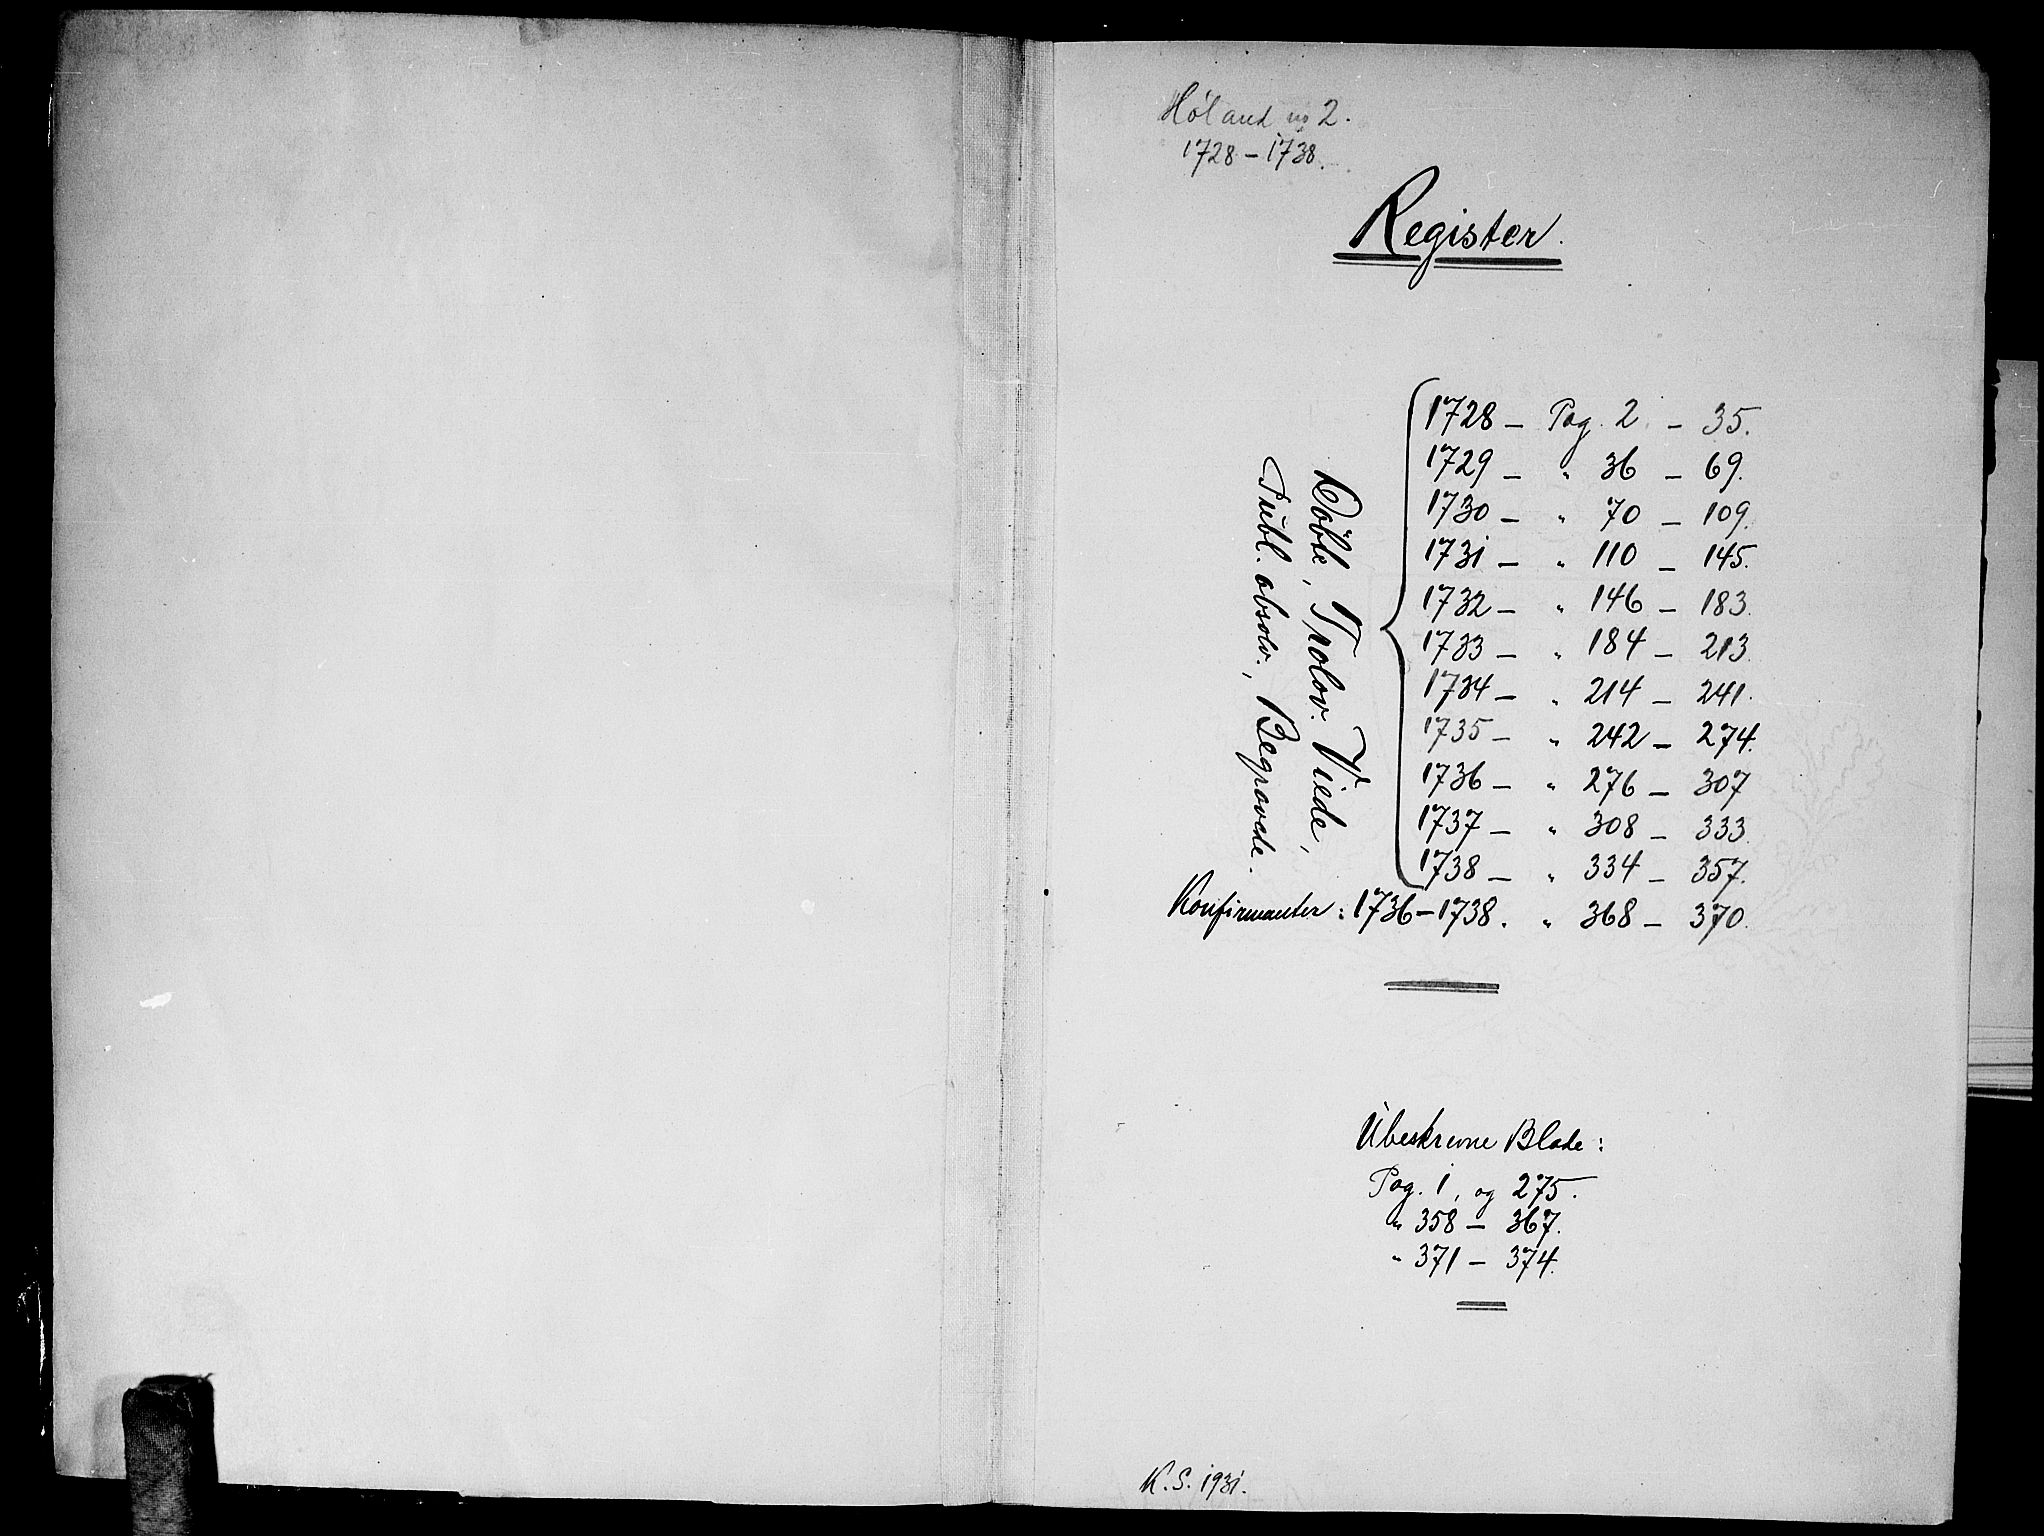 Høland no 2.
1728 - 1738.
Register.
Döbte, Trolov. Viede,
Publ. absolv., Begravede.
1728 - Pag. 2 - 35.
1729 - " 36 - 69.
1730 - " 70 - 109.
1731 - " 110 - 145.
1732 - " 146 - 183.
1733 - " 184 - 213.
1734 - " 214 - 241.
1735 - " 242 - 274.
1736 - " 276 - 307
1737 - " 308 - 333
1738 - " 334 - 357.
Konfirmanter: 1736-1738. " 368 - 370.
Ubeskrevne Blade:
Pag. 1, og 275.
" 358 - 367.
" 371 - 374.
K.S. 1931.